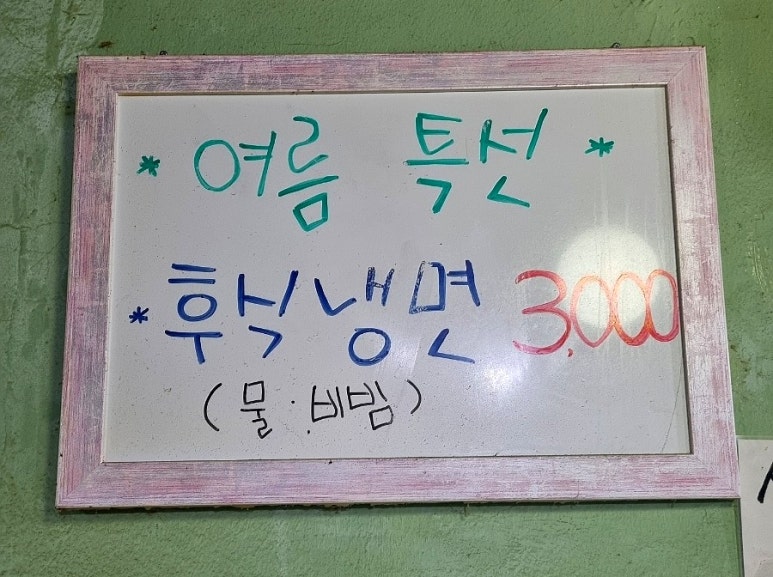 * 여름 특선 *
* 후식냉면 3,000
(물·비빔)